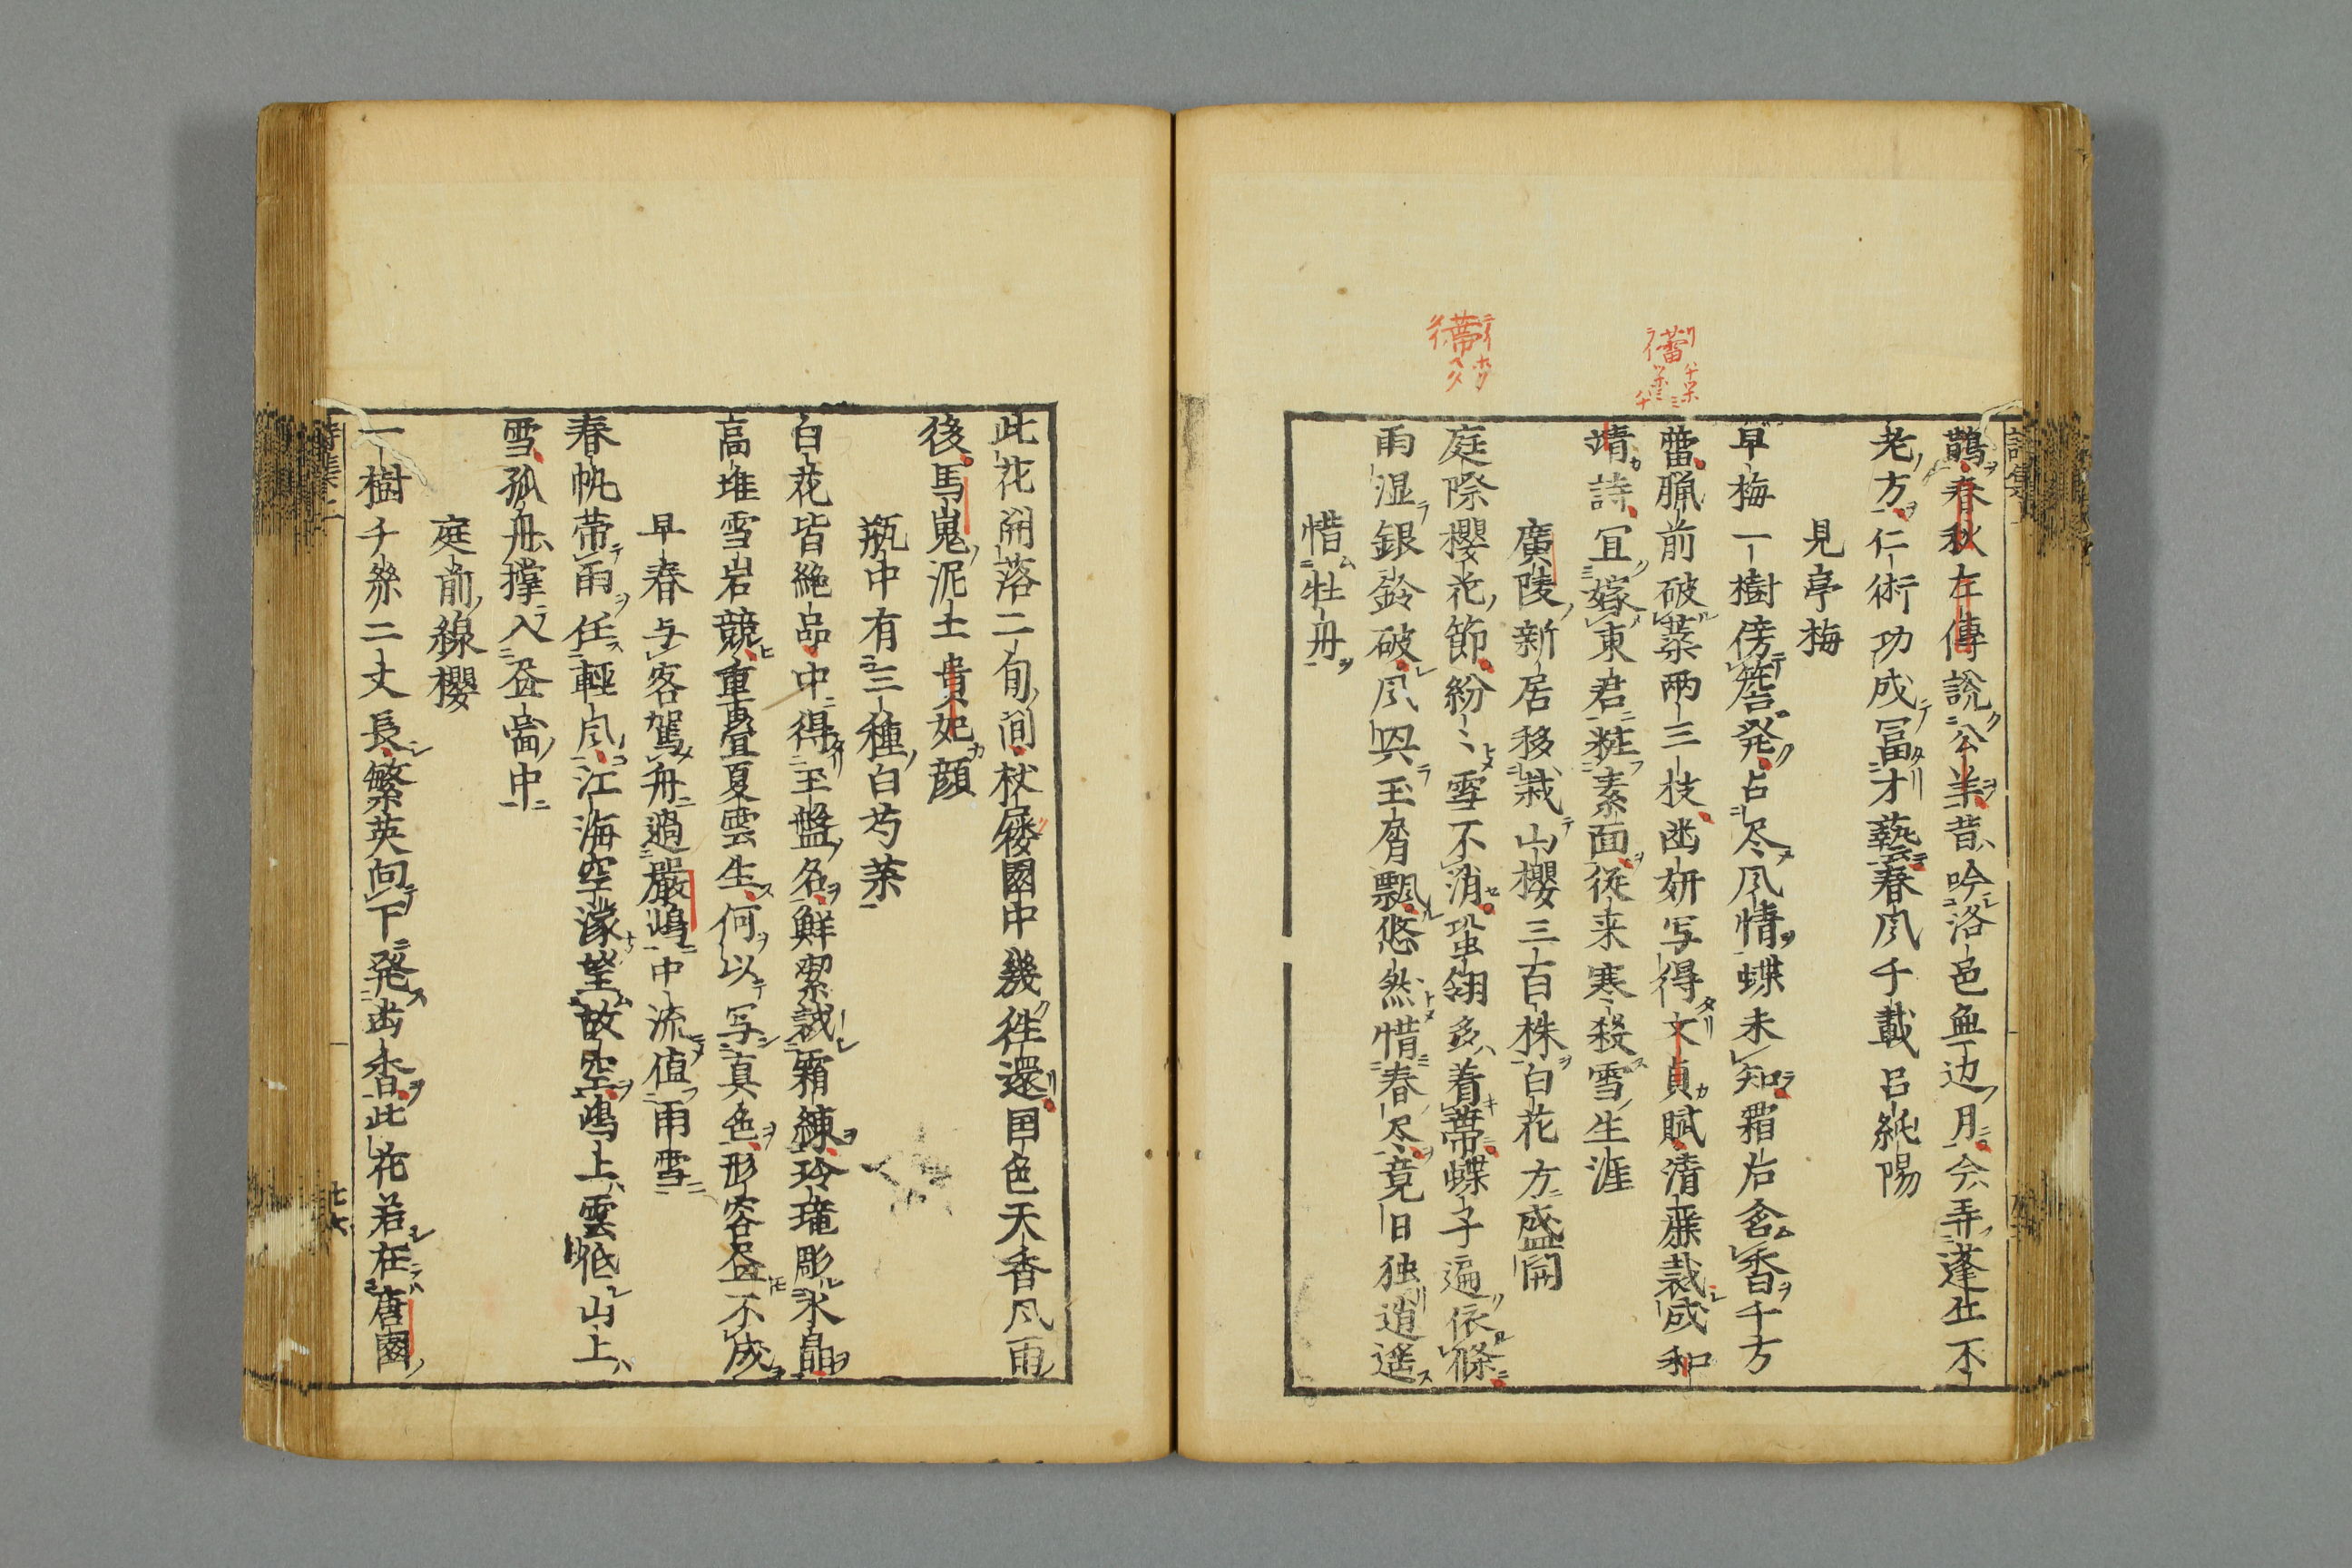 鵲春秋左傳說公羊昔吟洛邑無边月今弄蓬丘不
老方仁術功成冨才藝春風千載呂純陽
見亭梅
早梅一樹傍簷発占尽風情蝶未知霜后含香千方
蕾臘前破蘂兩三枝幽妍写得文貞賦清癯裁成和
靖詩冝嫁東君粧素面従来寒殺雪生涯
廣陵新居移栽山櫻三百株白花方盛開
庭際櫻花節紛〻雪不消蛩翎多着蔕蝶子遍依條
雨湿銀鈴破風吹玉屑飄悠然惜春尽竟日独逍遥
惜牡丹
此花開落二旬間杖屨園中幾徃還国色天香風雨
後馬嵬泥土貴妃顔
瓶中有三種白芍薬
白花皆絶品中得玉盤名鮮潔誠霜練玲瓏彫氷晶
高堆雪岩競重畳夏雲生何以写真色形容盡不成
早春与客駕舟過嚴嶋中流値雨雪
春帆帯雨任軽風江海空濛望故空鴻上雲低山上
雪孤舟撑入画啚中
庭前線櫻
一樹千絲二丈長繁英向下発幽香此花若在唐國